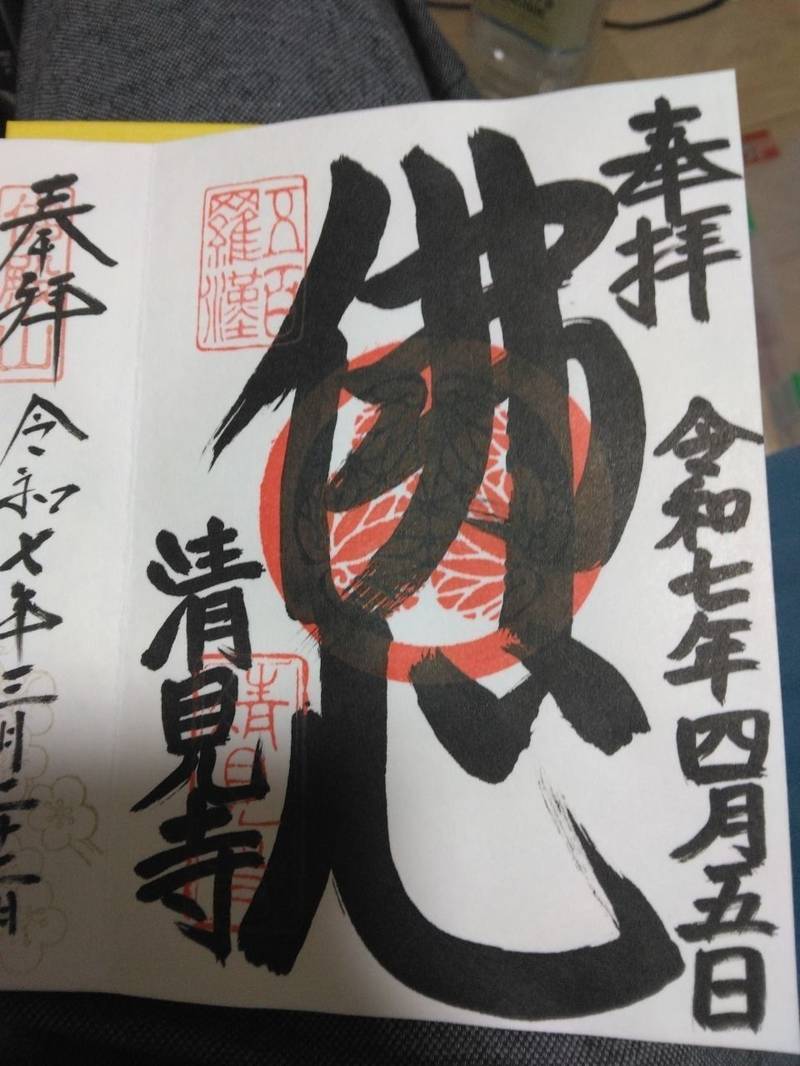 奉拝
令和七年四月五日
佛心
五百
羅漢
清見寺
清見
奉拝
令和七年三月二十二日